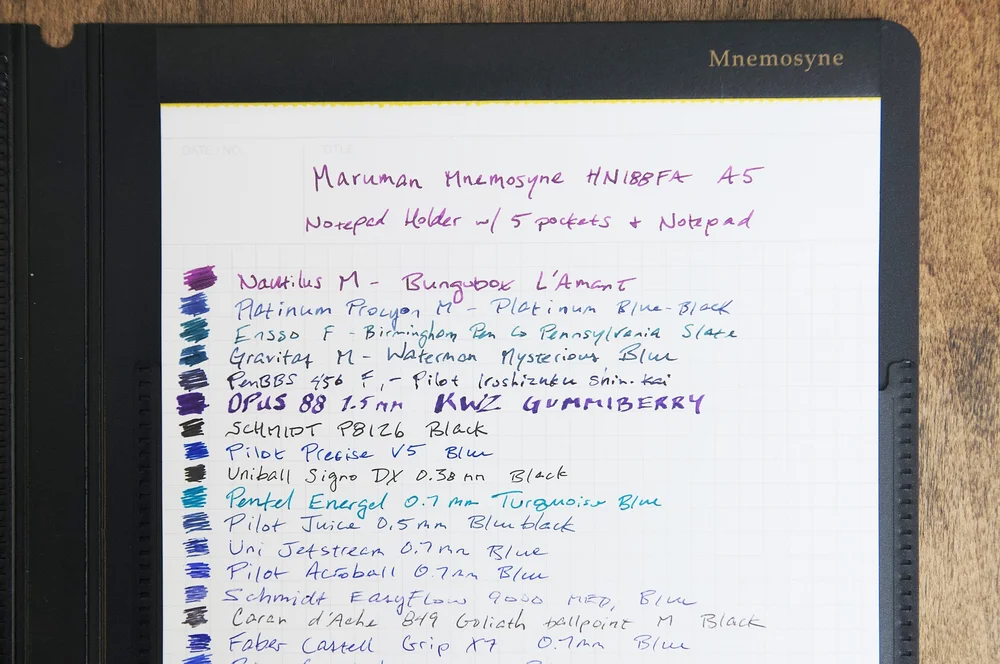 Mnemosyne
DATE / NO.
TITLE
Maruman Mnemosyne HN188FA A5
Notepad Holder w/ 5 pockets + Notepad
Nautilus M - Bungubox L'Amant
Platinum Procyon M - Platinum Blue-Black
Ensso F - Birmingham Pen Co Pennsylvania Slate
Gravitas M - Waterman Mysterious Blue
PenBBS 456 F, - Pilot Iroshizuku shin-kai
OPUS 88 1.5 mm KWZ GUMMIBERRY
SCHMIDT P8126 Black
Pilot Precise V5 Blue
Uniball Signo DX 0.38 mm Black
Pentel Energel 0.7 mm Turquoise Blue
Pilot Juice 0.5mm Blueblack
Uni Jetstream 0.7mm Blue
Pilot Acroball 0.7mm Blue
Schmidt EasyFlow 9000 MED, Blue
Caran d'Ache 849 Goliath ballpoint M Black
Faber Castell Grip X7 0.7mm Blue